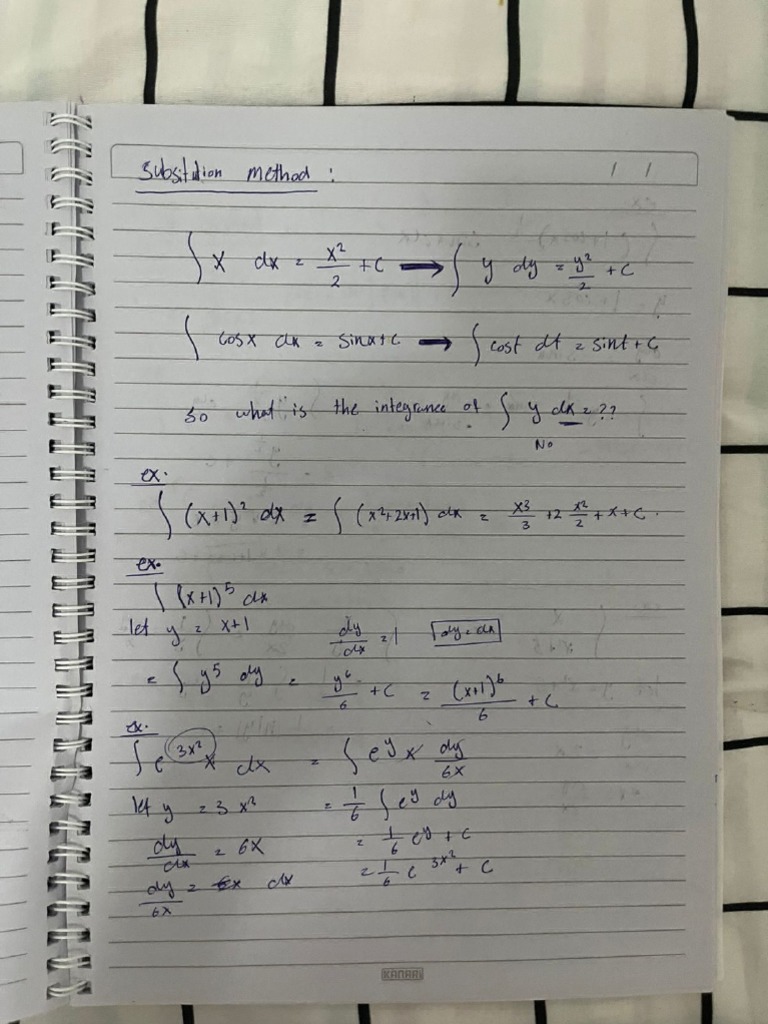 Subsitution method : / /
∫ x dx = x²/2 + c → ∫ y dy = y²/2 + c
∫ cosx dx = sinx + c → ∫ cost dt = sint + c
so what is the integrance of ∫ y dx = ??
No
ex.
∫ (x+1)² dx = ∫ (x²+2x+1) dx = x³/3 + 2 x²/2 + x + c.
ex.
∫ (x+1)⁵ dx
let y = x+1 dy/dx = 1 dy = dx
= ∫ y⁵ dy = y⁶/6 + c = (x+1)⁶/6 + c
ex.
∫ e^3x² x dx = ∫ e^y x dy/6x
let y = 3x² = 1/6 ∫ e^y dy
dy/dx = 6x = 1/6 e^y + c
dy/6x = dx = 1/6 e^3x² + c
KANARI